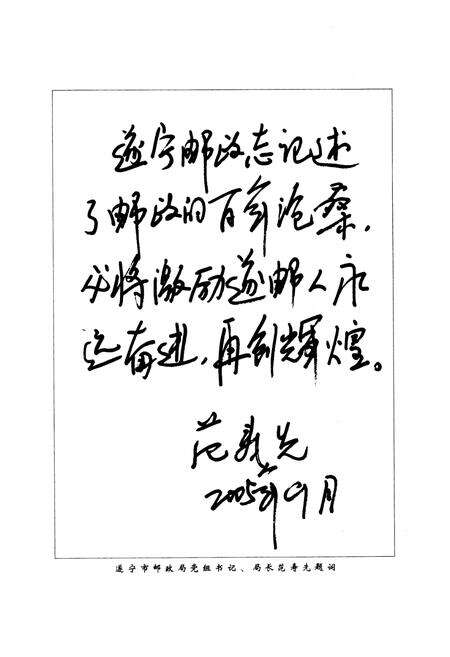 遂宁邮政志记述
了邮政的百年沧桑，
必将激励遂邮人永
远奋进，再创辉煌。
范寿先
2005年9月
遂宁市邮政局党组书记、局长范寿先题词